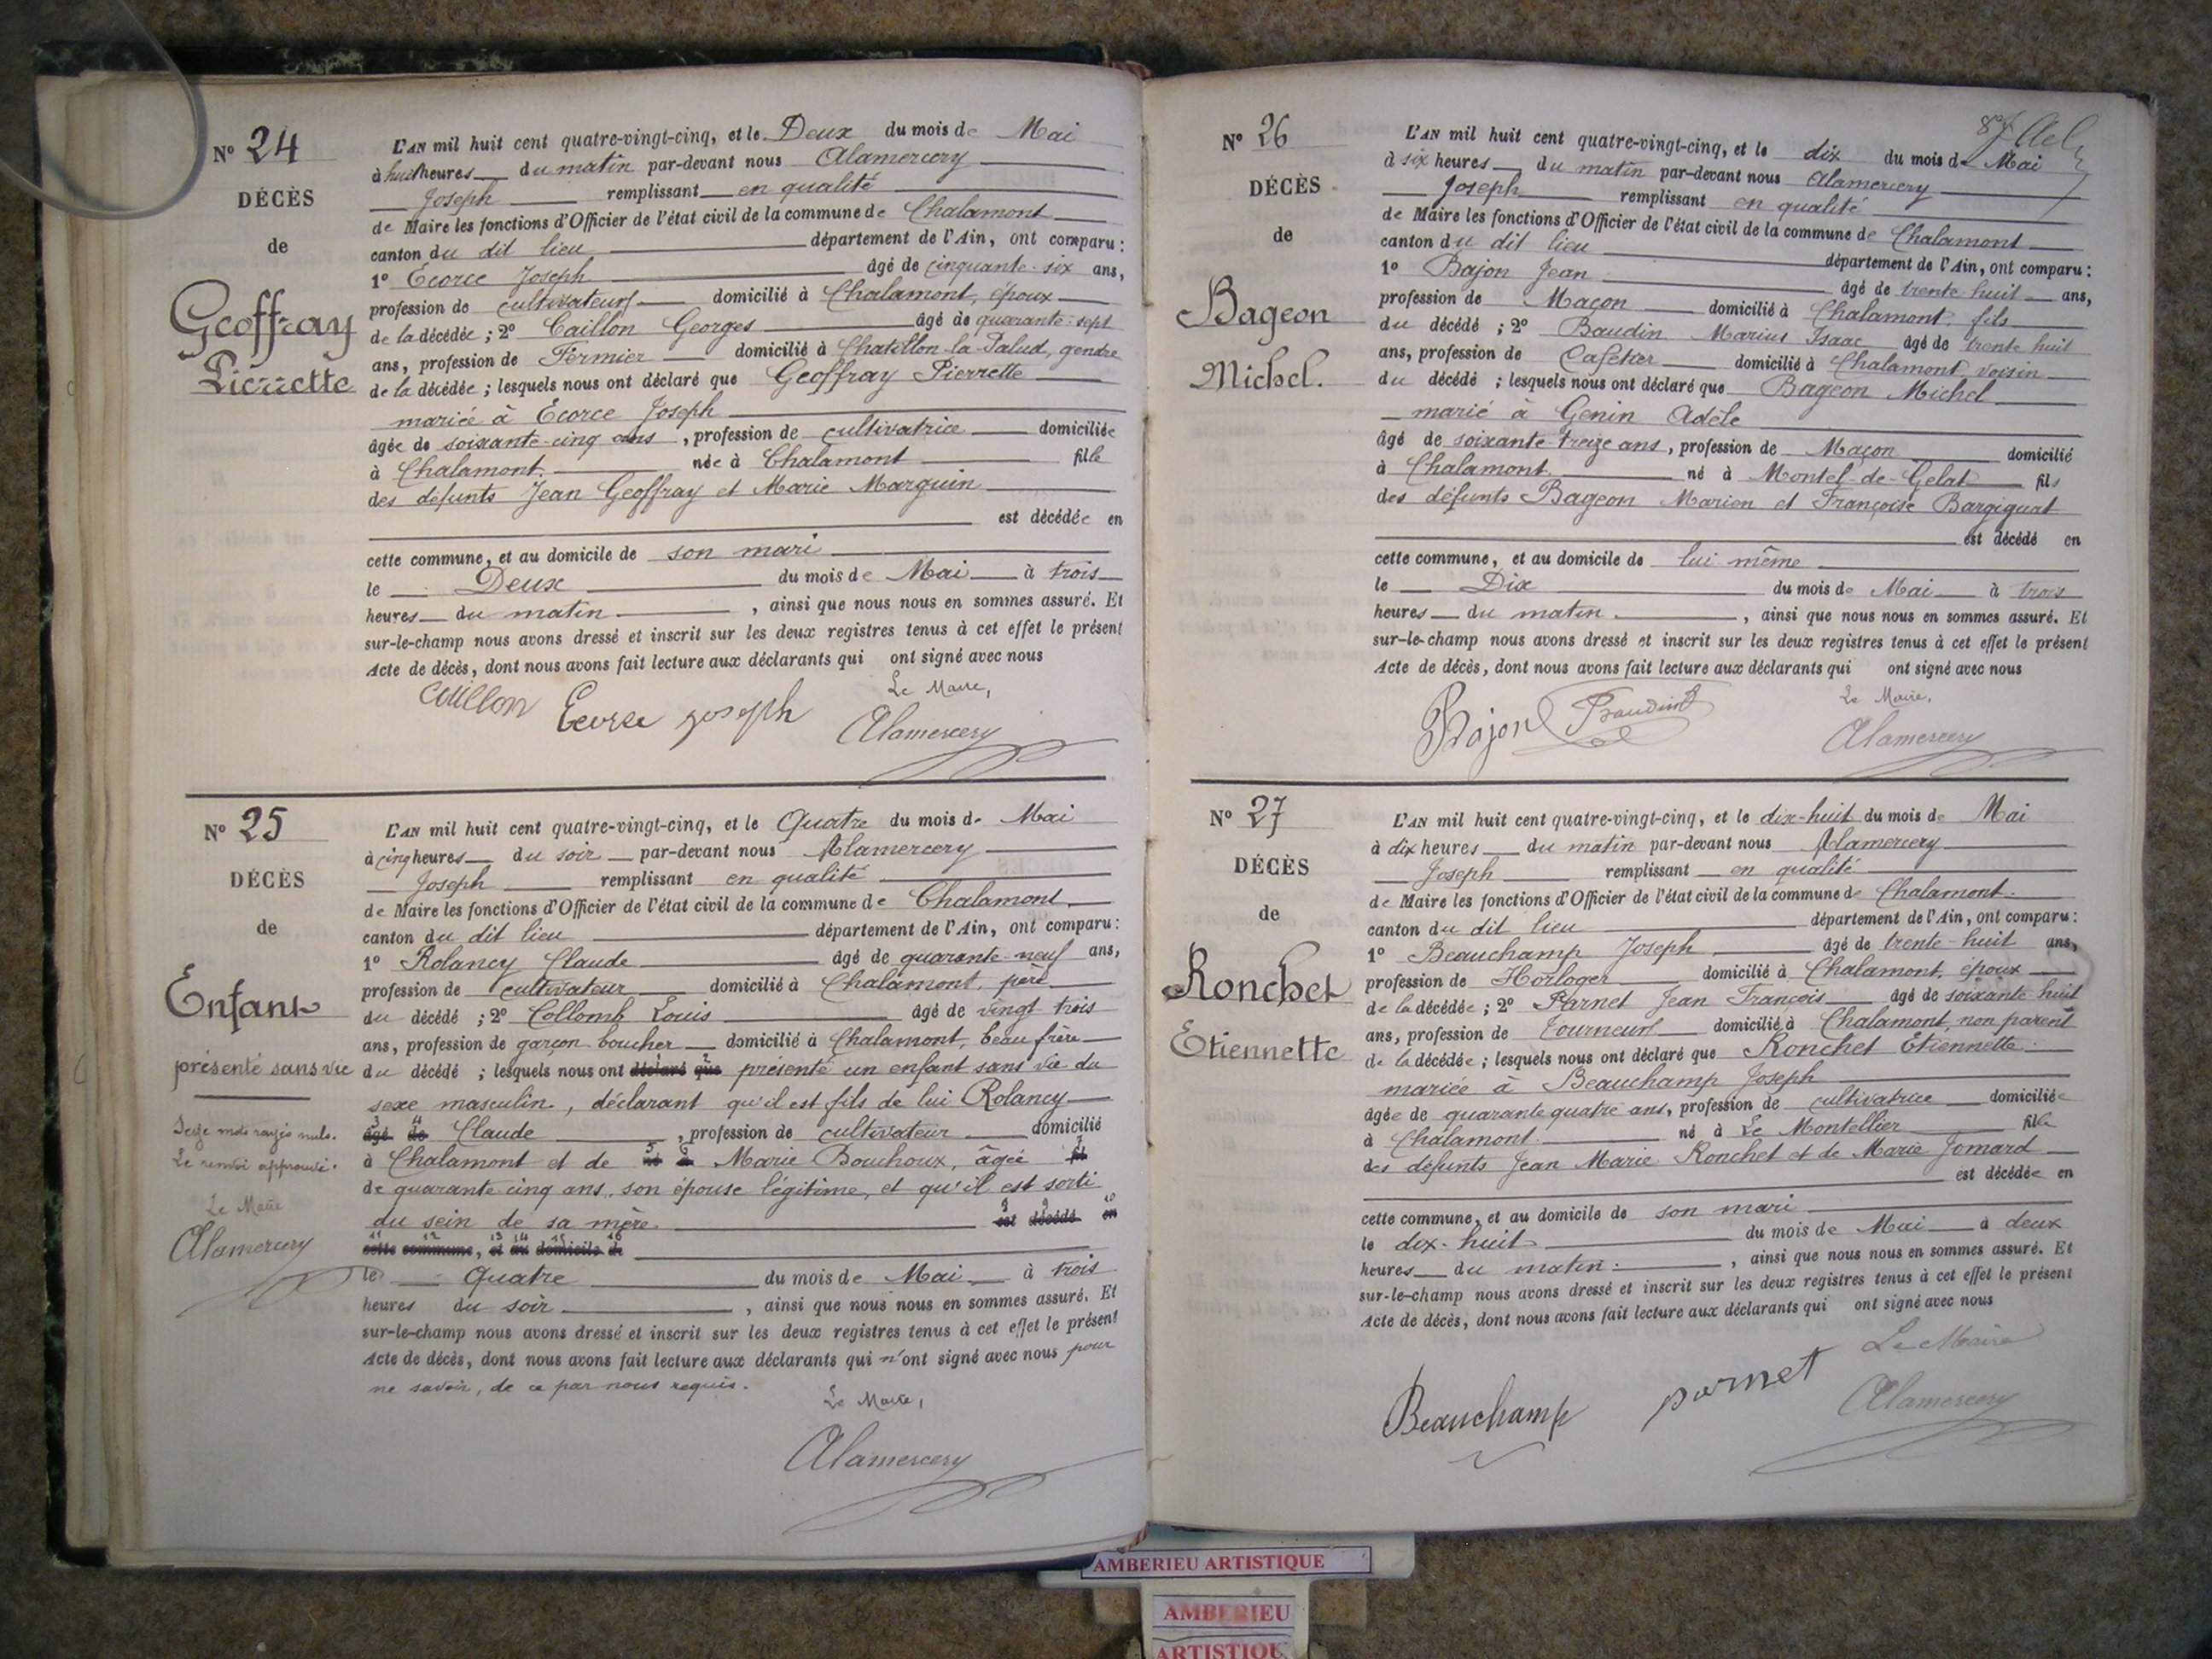 N° 24
DÉCÈS
de
Geoffray
Pierrette
L'AN mil huit cent quatre-vingt-cinq, et le Deux du mois de Mai
à huit heures du matin par-devant nous Alamercery
Joseph remplissant en qualité
de Maire les fonctions d'Officier de l'état civil de la commune de Chalamont
canton du dit lieu département de l'Ain, ont comparu :
1° Ecorce Joseph âgé de cinquante-six ans,
profession de cultivateur domicilié à Chalamont, époux
de la décédée ; 2° Caillon Georges âgé de quarante-sept
ans, profession de Fermier domicilié à Chatillon-la-Palud, gendre
de la décédée ; lesquels nous ont déclaré que Geoffray Pierrette
mariée à Ecorce Joseph
âgée de soixante-cinq ans, profession de cultivatrice domiciliée
à Chalamont née à Chalamont fille
des défunts Jean Geoffray et Marie Marguin
est décédée en
cette commune, et au domicile de son mari
le Deux du mois de Mai à trois
heures du matin, ainsi que nous nous en sommes assuré. Et
sur-le-champ nous avons dressé et inscrit sur les deux registres tenus à cet effet le présent
Acte de décès, dont nous avons fait lecture aux déclarants qui ont signé avec nous
Le Maire,
Caillon Ecorce joseph Alamercery
N° 25
DÉCÈS
de
Enfant
présenté sans vie
Seize mots rayés nuls.
Le renvoi approuvé.
Le Maire
Alamercery
L'AN mil huit cent quatre-vingt-cinq, et le Quatre du mois de Mai
à cinq heures du soir par-devant nous Alamercery
Joseph remplissant en qualité
de Maire les fonctions d'Officier de l'état civil de la commune de Chalamont
canton du dit lieu département de l'Ain, ont comparu :
1° Rolancy Claude âgé de quarante-neuf ans,
profession de cultivateur domicilié à Chalamont, père
du décédé ; 2° Collomb Louis âgé de vingt trois
ans, profession de garçon boucher domicilié à Chalamont, beau frère
du décédé ; lesquels nous ont déclaré que présenté un enfant sans vie du
sexe masculin, déclarant qu'il est fils de lui Rolancy
âgé de Claude, profession de cultivateur domicilié
à Chalamont et de né à Marie Bouchoux, âgée fil
de quarante cinq ans, son épouse légitime, et qu'il est sorti
du sein de sa mère. est décédé en
cette commune, et au domicile de
le Quatre du mois de Mai à trois
heures du soir, ainsi que nous nous en sommes assuré. Et
sur-le-champ nous avons dressé et inscrit sur les deux registres tenus à cet effet le présent
Acte de décès, dont nous avons fait lecture aux déclarants qui n'ont signé avec nous pour
ne savoir, de ce par nous requis.
Le Maire,
Alamercery
N° 26
DÉCÈS
de
Bageon
Michel.
L'AN mil huit cent quatre-vingt-cinq, et le dix du mois de Mai
à six heures du matin par-devant nous Alamercery
Joseph remplissant en qualité
de Maire les fonctions d'Officier de l'état civil de la commune de Chalamont
canton du dit lieu département de l'Ain, ont comparu :
1° Bajon Jean âgé de trente-huit ans,
profession de Maçon domicilié à Chalamont, fils
du décédé ; 2° Baudin Marius Isaac âgé de trente huit
ans, profession de Cafetier domicilié à Chalamont, voisin
du décédé ; lesquels nous ont déclaré que Bageon Michel
marié à Genin Adèle
âgé de soixante-treize ans, profession de Maçon domicilié
à Chalamont né à Montel-de-Gelat fils
des défunts Bageon Marien et Françoise Bargiquat
est décédé en
cette commune, et au domicile de lui même
le Dix du mois de Mai à trois
heures du matin, ainsi que nous nous en sommes assuré. Et
sur-le-champ nous avons dressé et inscrit sur les deux registres tenus à cet effet le présent
Acte de décès, dont nous avons fait lecture aux déclarants qui ont signé avec nous
Le Maire.
Bajon Baudin Alamercery
N° 27
DÉCÈS
de
Ronchet
Etiennette
L'AN mil huit cent quatre-vingt-cinq, et le dix-huit du mois de Mai
à dix heures du matin par-devant nous Alamercery
Joseph remplissant en qualité
de Maire les fonctions d'Officier de l'état civil de la commune de Chalamont.
canton du dit lieu département de l'Ain, ont comparu :
1° Beauchamp Joseph âgé de trente-huit ans,
profession de Horloger domicilié à Chalamont, époux
de la décédée ; 2° Parnet Jean François âgé de soixante huit
ans, profession de Tourneur domicilié à Chalamont, non parent
de la décédée ; lesquels nous ont déclaré que Ronchet Etiennette
mariée à Beauchamp Joseph
âgée de quarante quatre ans, profession de cultivatrice domiciliée
à Chalamont né à Le Montellier fille
des défunts Jean Marie Ronchet et de Marie Jomard
est décédée en
cette commune, et au domicile de son mari
le dix-huit du mois de Mai à deux
heures du matin, ainsi que nous nous en sommes assuré. Et
sur-le-champ nous avons dressé et inscrit sur les deux registres tenus à cet effet le présent
Acte de décès, dont nous avons fait lecture aux déclarants qui ont signé avec nous
Le Maire
Beauchamp parnet Alamercery
AMBERIEU ARTISTIQUE
AMBERIEU
ARTISTIQU